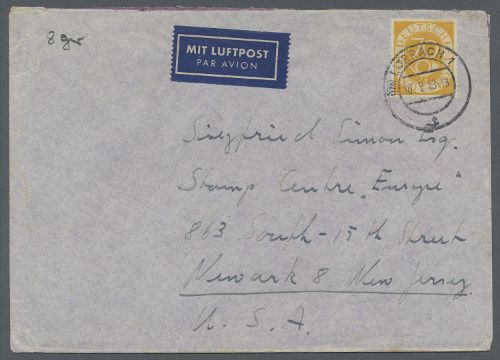 8 gr
MIT LUFTPOST
PAR AVION
DEUTSCHE
LÖRRACH 1
Siegfried Simon Esq.
Stamp Centre „Europe“
863 South - 15 th Street
Newark 8 New Jersey
U. S. A.